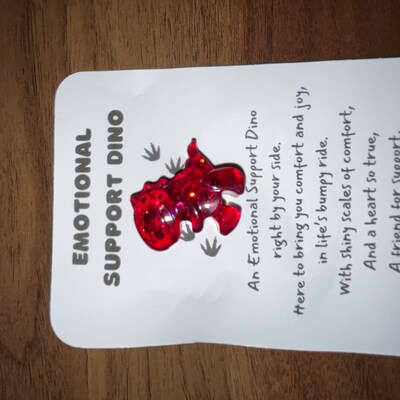 EMOTIONAL
SUPPORT DINO
An Emotional Support Dino
right by your side,
Here to bring you comfort and joy,
in life's bumpy ride.
With shiny scales of comfort,
And a heart so true,
A friend for support,